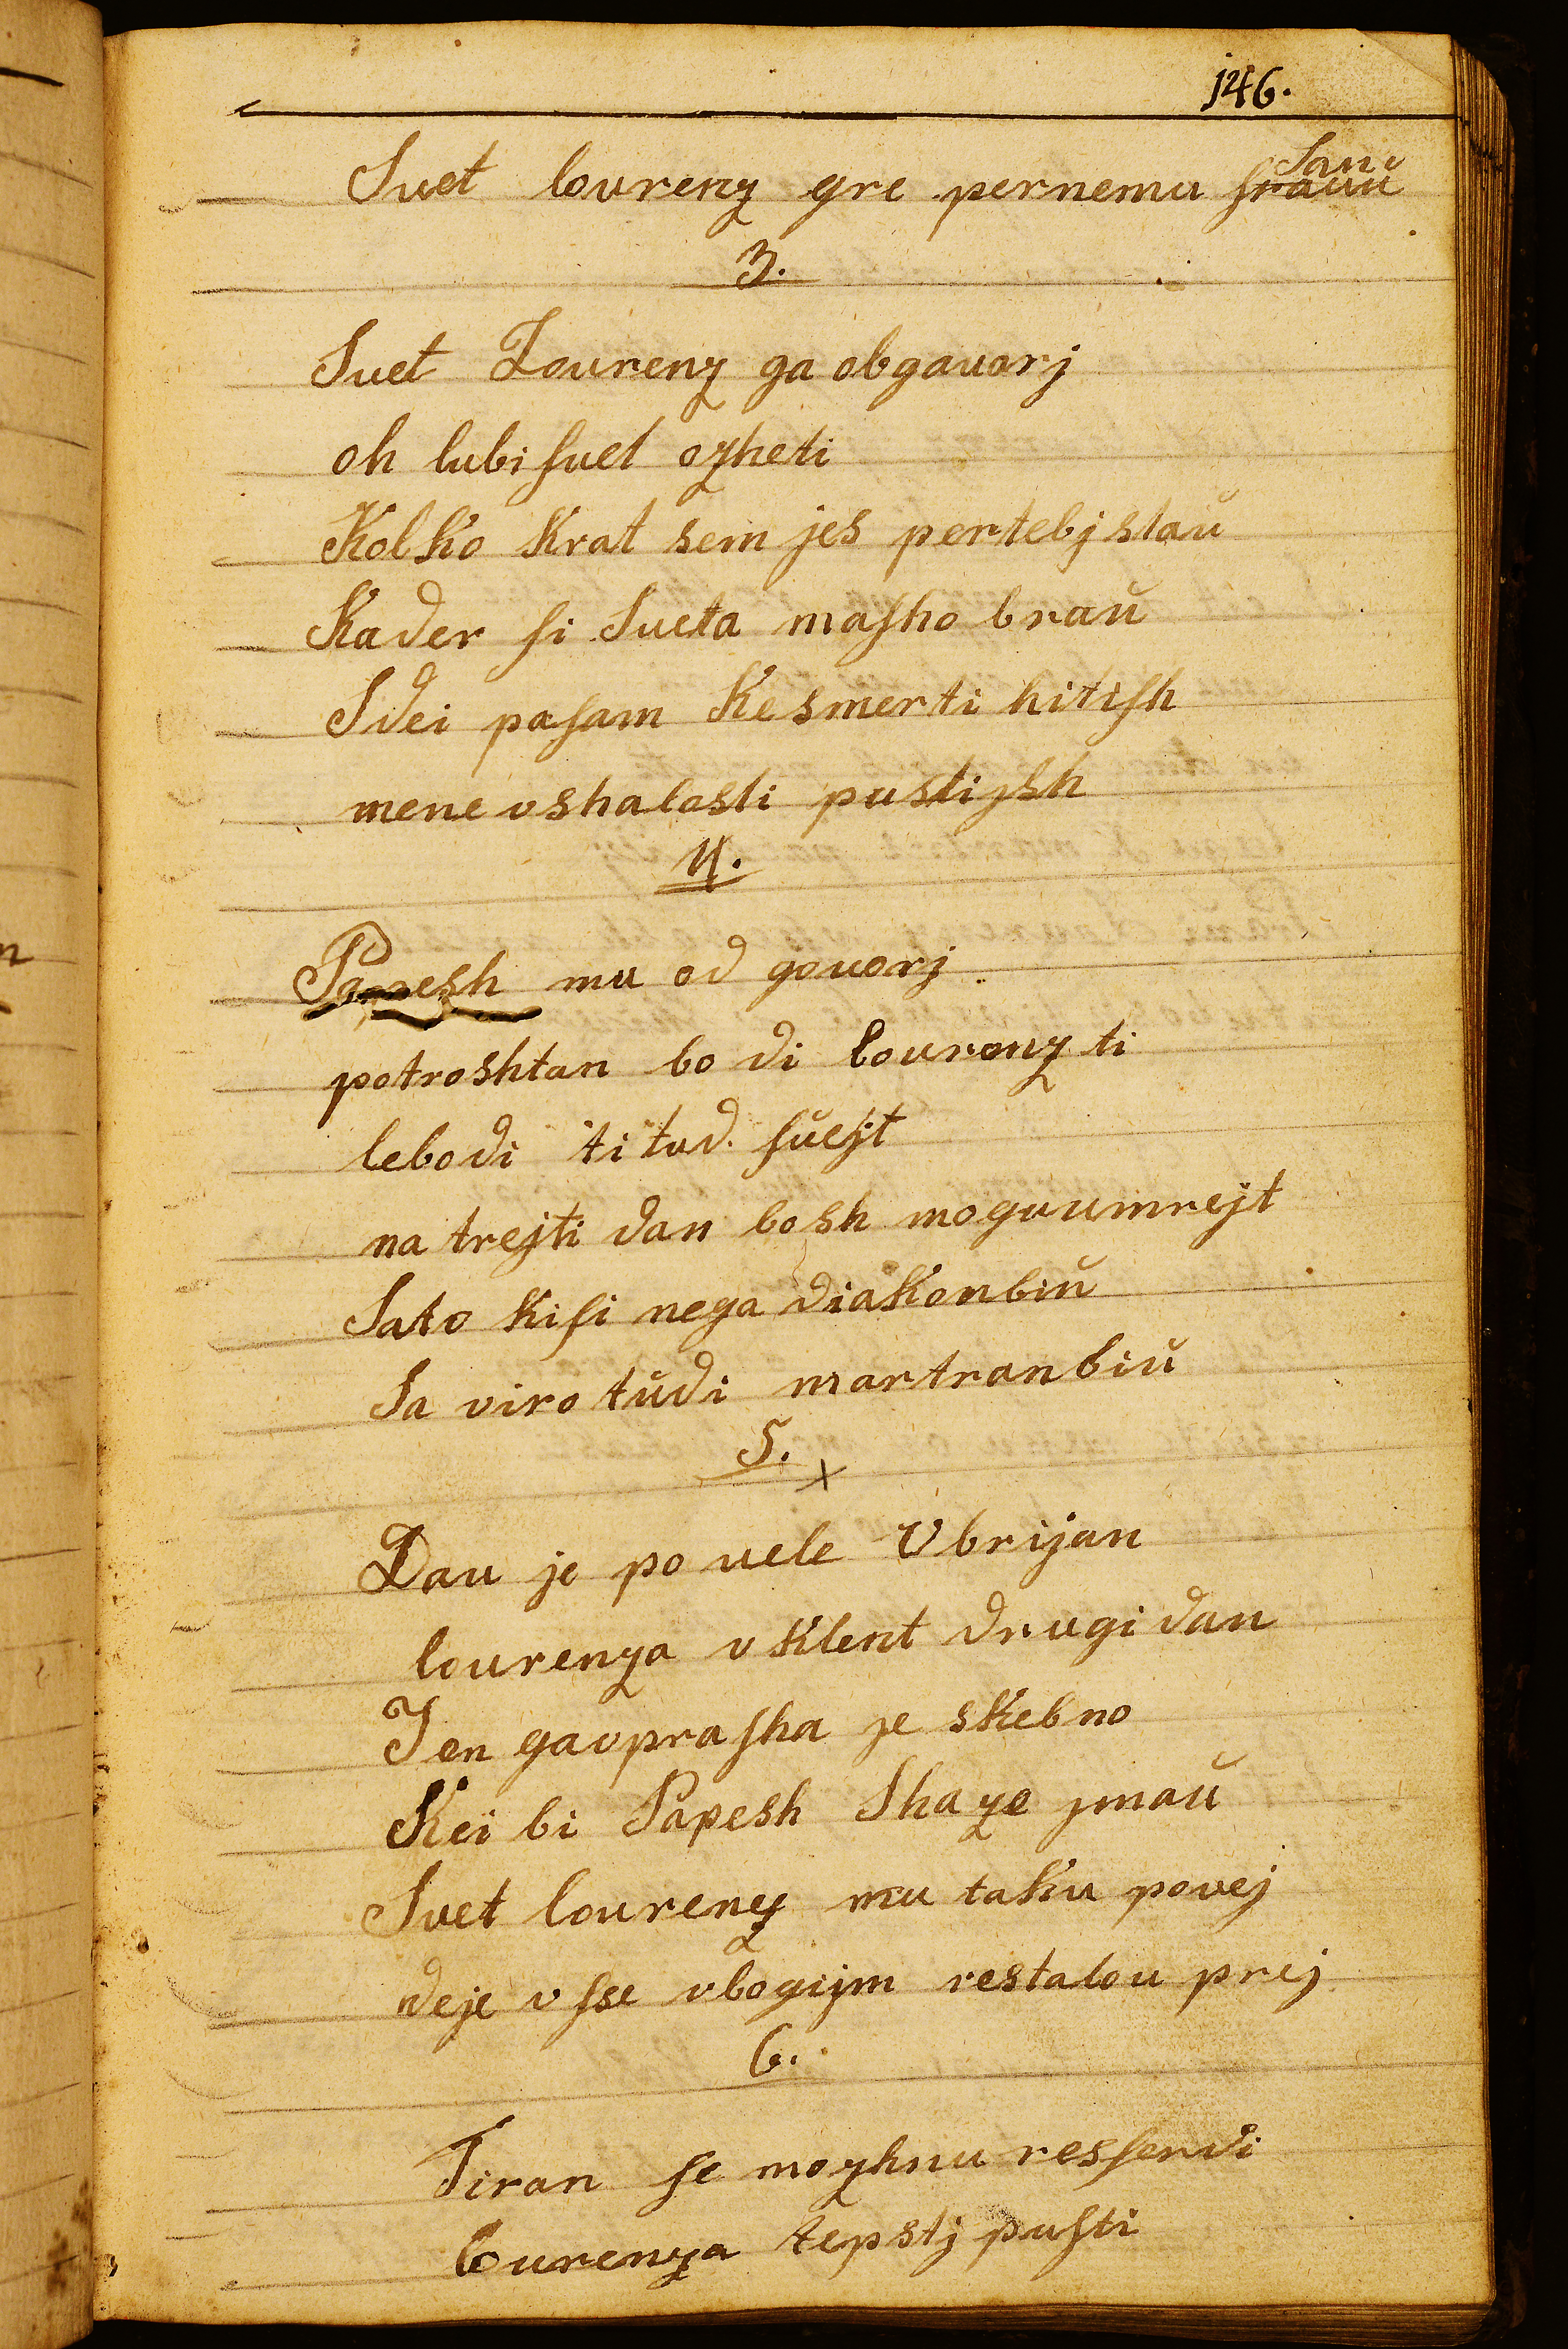 146.
Svet lovrenz gre pernemu Sanŭ
3.
Svet Lovrenz ga obgavorj
oh lubi ſvet ozheti
Kolko krat sem jes pertebj staŭ
Kader ſi Sveta maſho braŭ
Sdei paſam Kesmerti hitiſh
mene vshalosti pustijsh
4.
Papesh mu od govorj
potroshtan bo di lovrenz ti
lebodi ti tud. ſŭejt
na trejti dan bosh moguumrejt
Sato kiſi nega diakonbiŭ
Sa viro tŭdi martranbiŭ
5. x
Dau je po vele Vbrijan
lovrenza vklent drugi dan
Jen gavpraſha je skebno
Kei bi Papesh Shaze jmaŭ
Svet lovrenz mu taku povej
deje vſse vbogijm restalou prej
6.
Tiran ſe mozhnu resſerdi
lourenza tepstj puſti